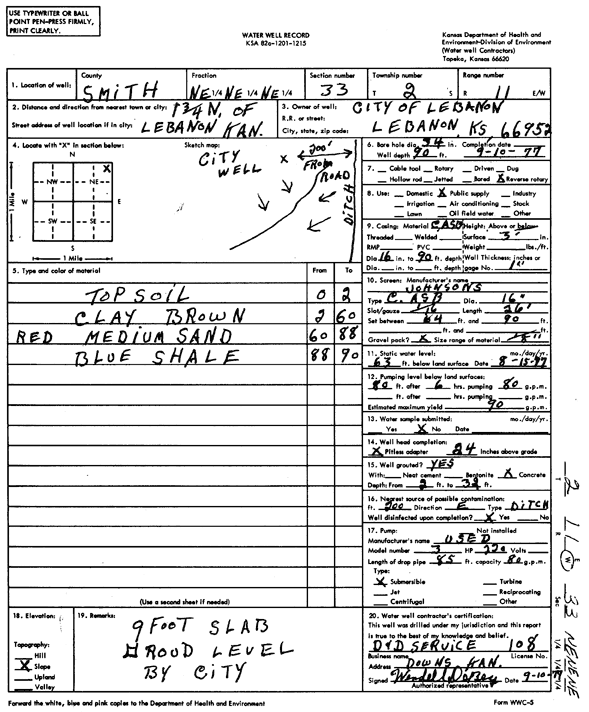 USE TYPEWRITER OR BALL
POINT PEN-PRESS FIRMLY,
PRINT CLEARLY.
WATER WELL RECORD
KSA 82a-1201-1215
Kansas Department of Health and
Environment-Division of Environment
(Water well Contractors)
Topeka, Kansas 66620
1. Location of well: County SMITH Fraction NE 1/4 NE 1/4 NE 1/4 Section number 33 Township number T 2 S Range number R 11 E/W
2. Distance and direction from nearest town or city: 1 3/4 N. OF
Street address of well location if in city: LEBANON KAN.
3. Owner of well: CITY OF LEBANON
R.R. or street:
City, state, zip code: LEBANON KS 66952
4. Locate with "X" in section below:
N
X
NW NE
W E
SW SE
S
1 Mile
1 Mile
Sketch map:
CITY WELL X 200' FROM ROAD
DITCH
5. Type and color of material From To
TOP SOIL 0 2
CLAY BROWN 2 60
RED MEDIUM SAND 60 88
BLUE SHALE 88 90
(Use a second sheet if needed)
6. Bore hole dia. 34 in. Completion date
Well depth 90 ft. 9-10-77
7. Cable tool Rotary Driven Dug
Hollow rod Jetted Bored X Reverse rotary
8. Use: Domestic X Public supply Industry
Irrigation Air conditioning Stock
Lawn Oil field water Other
9. Casing: Material Height: Above or below
Threaded Welded Surface 3' in.
RMP PVC Weight lbs./ft.
Dia. 16 in. to 90 ft. depth Wall Thickness: inches or
Dia. in. to ft. depth gage No. 1"
10. Screen: Manufacturer's name
JOHNSONS
Type Dia. 16"
Slot/gauze Length 26'
Set between 64 ft. and 90 ft.
ft. and ft.
Gravel pack? X Size range of material
11. Static water level: mo./day/yr.
63 ft. below land surface Date 8-15-77
12. Pumping level below land surfaces:
80 ft. after 6 hrs. pumping 80 g.p.m.
ft. after hrs. pumping g.p.m.
Estimated maximum yield 90 g.p.m.
13. Water sample submitted: mo./day/yr.
Yes X No Date
14. Well head completion:
X Pitless adapter 24 Inches above grade
15. Well grouted? YES
With: Neat cement Bentonite X Concrete
Depth: From 2 ft. to 32 ft.
16. Nearest source of possible contamination:
ft. 200 Direction E Type DITCH
Well disinfected upon completion? X Yes No
17. Pump: Not installed
Manufacturer's name USED
Model number 3 HP 220 Volts
Length of drop pipe 85 ft. capacity 80 g.p.m.
Type:
X Submersible Turbine
Jet Reciprocating
Centrifugal Other
18. Elevation:
Topography:
Hill
X Slope
Upland
Valley
19. Remarks:
9 FOOT SLAB
GROUD LEVEL
BY CITY
20. Water well contractor's certification:
This well was drilled under my jurisdiction and this report
is true to the best of my knowledge and belief.
D&D SERVICE 108
Business name License No.
Address DOWNS KAN.
Signed Date 9-10-77
Authorized representative
Forward the white, blue and pink copies to the Department of Health and Environment
Form WWC-5
T 2 R 11 E W Sec 33 NE NE NE 1/4 1/4 1/4